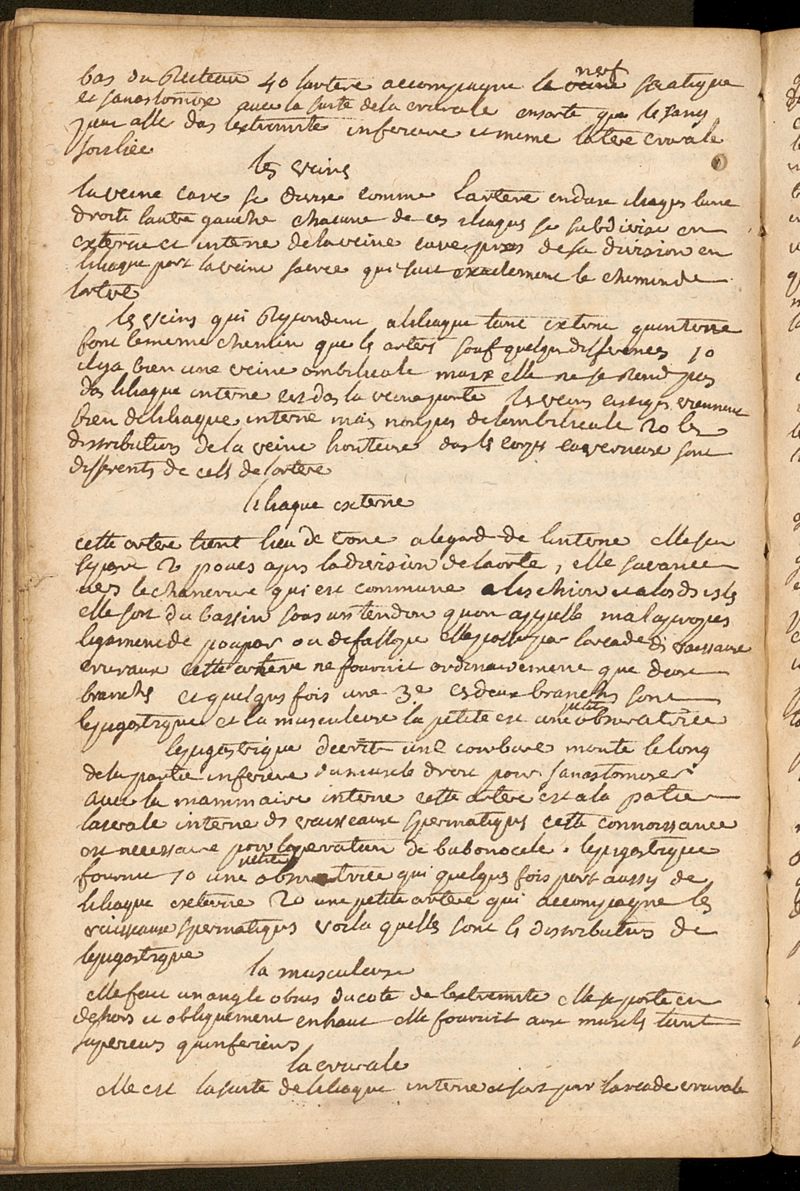 bas du Recteau 40 lartere accompagne le nerf sciatique
et sanastomose avec la suite de la crurale ensorte que le sang
peut alle das lextremite inferieure et meme latere crurale
soit liée
les veins
la veine cave se divise comme lartere en deux iliaques lune
droite lautre gauche chacune de ces iliaques se subdivise en
externe et interne de la veine cave pres de sa division en
iliaque part la veine sacrée qui suit exactement le chemin de
lartere
les veins qui Repondent a lilliaque tant externe quinterne
font le meme chemin que les arters sauf quelque differences 10
il y a bien une veine ombilicale maix elle ne se Rend pas
das liliaque interne cest das la veine porte les veins viennent
bien de liliaque interne mais non pas de lombilicale 20 les
distributions de la veine honteuse das le corps caverneux sont
differents de cells de lartere
liliaque externe
cette artere tient lieu de tronc a legard de linterne elle sen
separe 2 pouces apres la division de laorte, elle savance
vers le chancrure qui est commune a lischion et a los des isle
elle sort du bassin sous un tendon quon appelle mal apropos
ligament de poupar ou de fallope elle passe par larcade ds vaisseaux
cruraux cette artere ne fournit ordinairement que deux
branchs et quelque fois une 3e ces deux branchs sont
lepigastrique et la musculeuse la petite est une petite obturatrice
lepigastrique decrit une courbure monte le long
de la partie inferieure du muscle droit pour sanastomoser
avec la mammaire interne cette artere est a la partie
laterale interne ds vaisseaux spermatiqus cette connoissance
est necessaire pour loperation de bubonocele. lepigastrique
fournit 10 une petite obturatrice qui quelque fois part aussy de
liliaque exterieure 20 une petite artere qui accompagne les
vaisseaux spermatiqus voila quells sont ls distributions de
lepigastrique
la musculeuse
elle fait un angle obtus du coté de lextremité elle se porte en
dehors et obliquement en haut elle fournit aux muscls tant
superieurs quinferieurs
la crurale
elle est la suite de liliaque interne et sort par larcade crurale